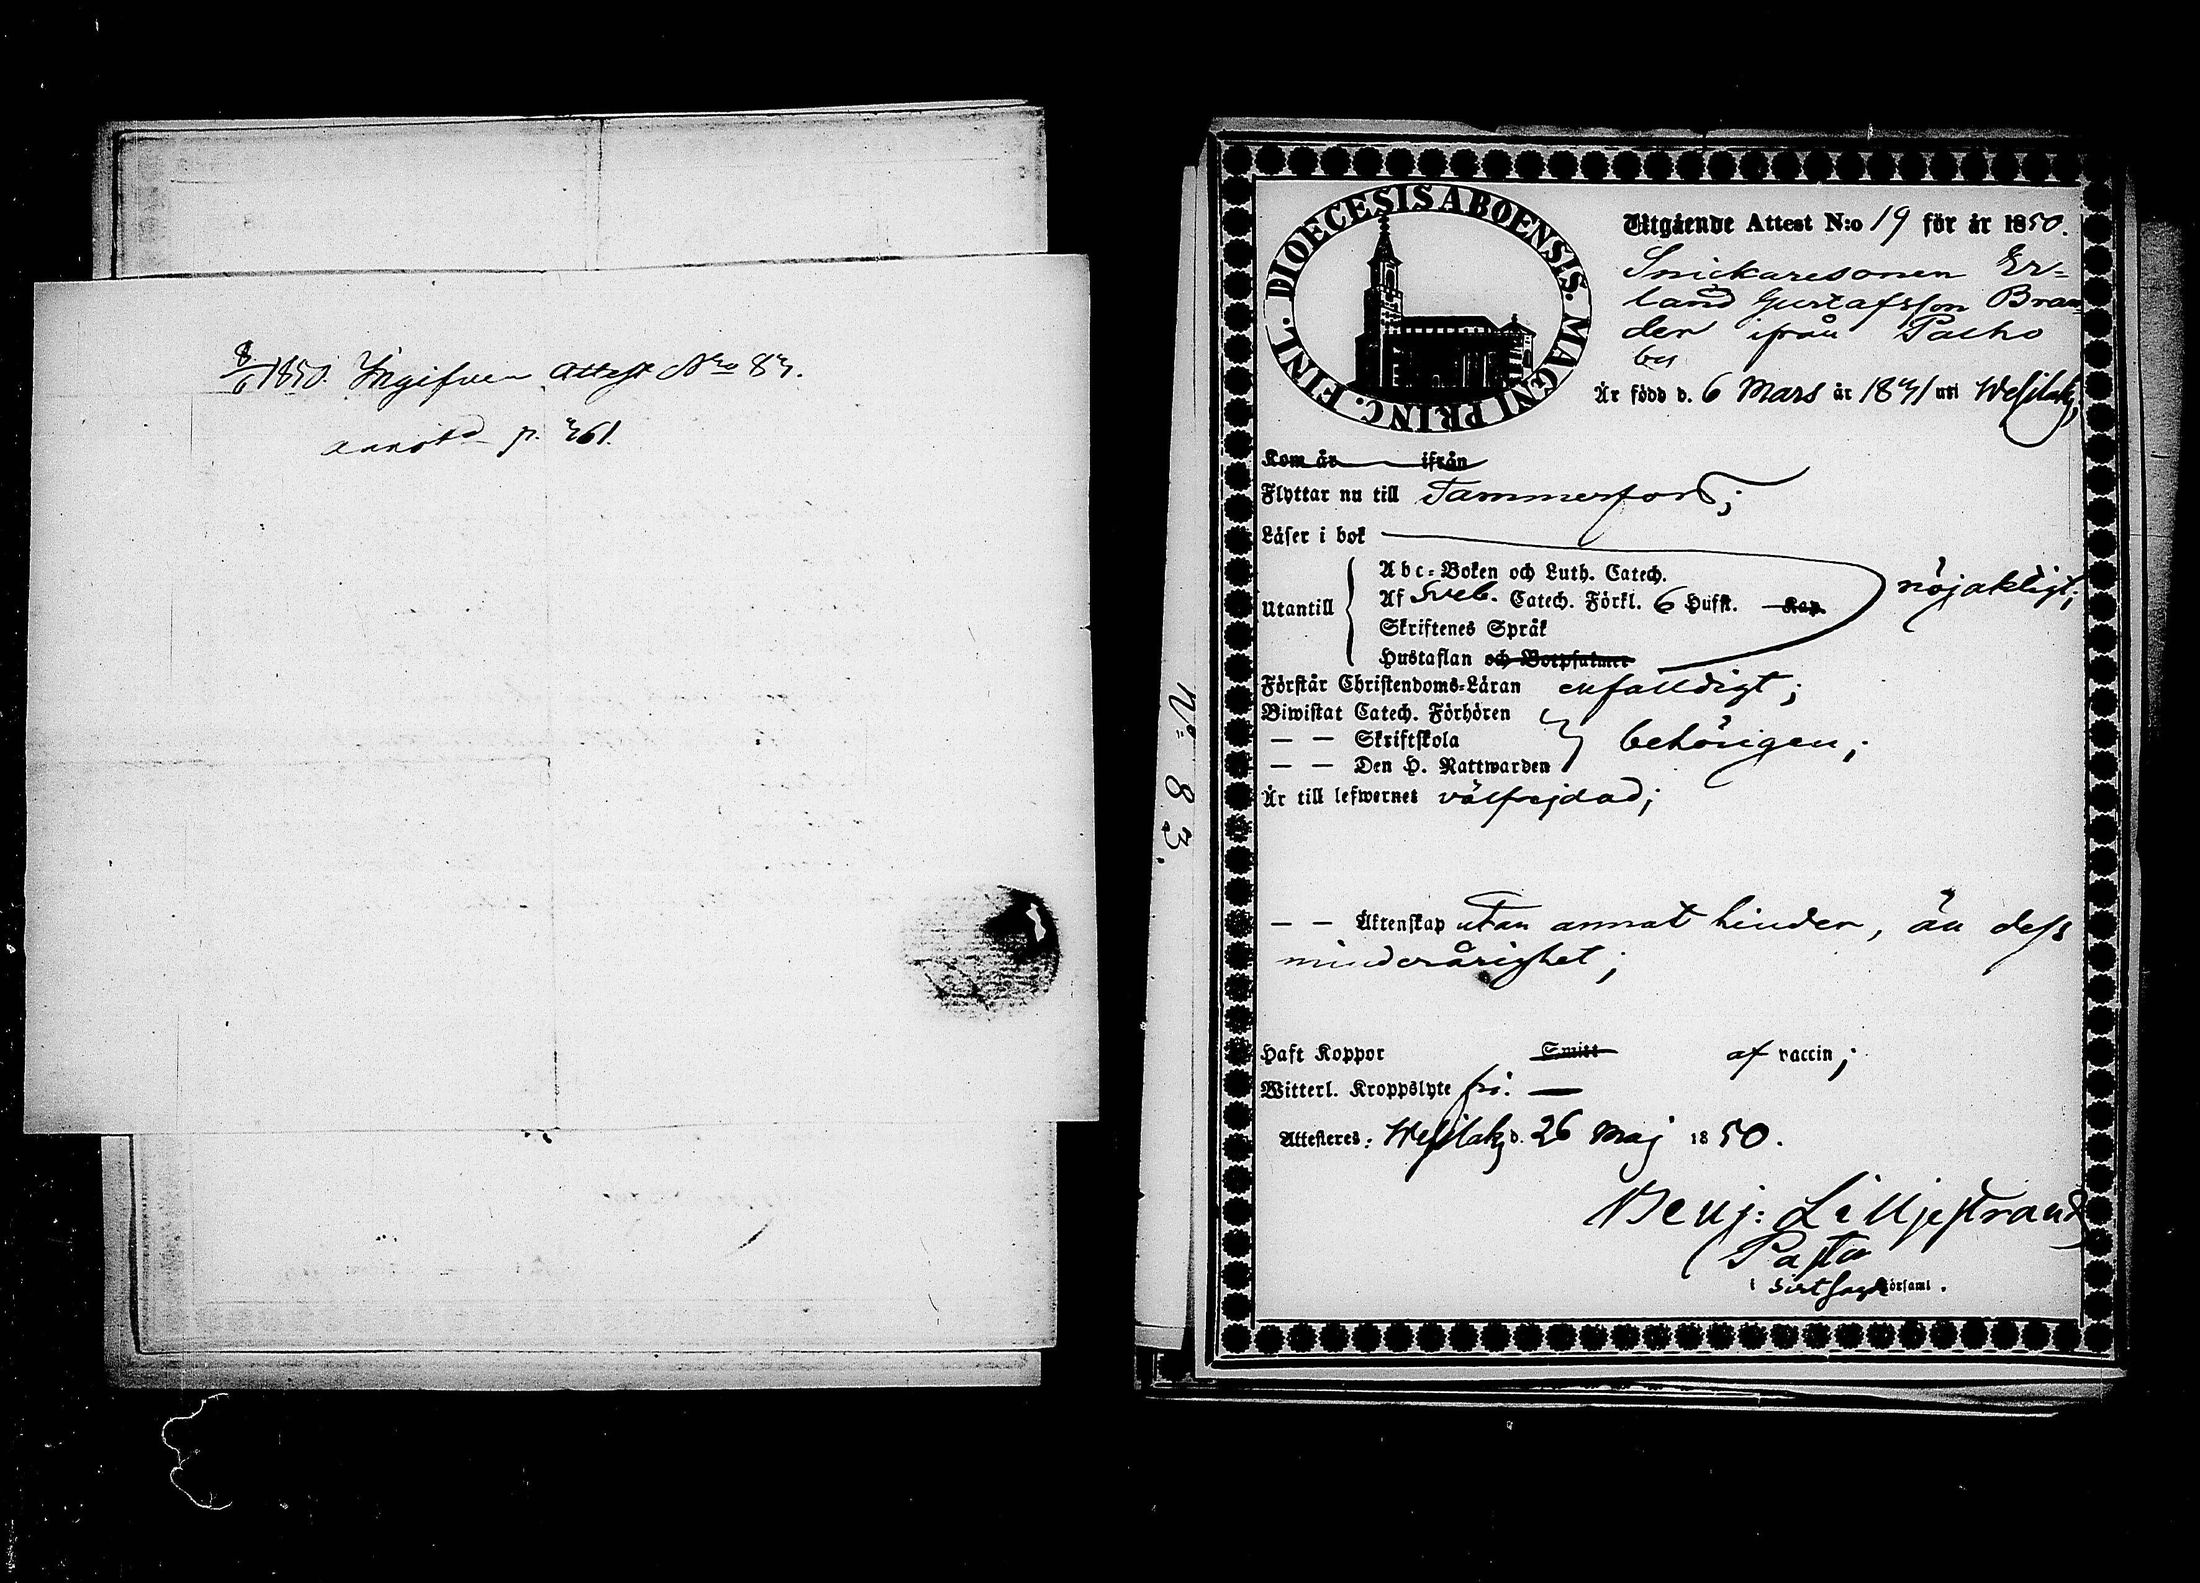 8/6 1850. Ingifven Attest No 83.
annotd p. 361.
No 83.
DIOECESIS ABOENSIS. MAGNI PRINC. FINL.
Utgående Attest N:o 19 för år 1850.
Snickaresonen Er=
land Gustafsson Bran
der ifrån Palho
by
Är född d. 6 Mars år 1831 uti Wesilax;
Kom år ifrån
Flyttar nu till Tammerfors;
Läser i bok
Utantill
Abc=Boken och Luth. Catech.
Af Sveb. Catech. Förkl. 6 Hufst. Kap.
Skriftenes Språk
Hustaflan och Botpsalmer
nöjaktigt;
Förstår Christendoms=Läran enfalldigt;
Biwistat Catech. Förhören
— — Skriftskola
— — Den H. Nattwarden
behörigen;
Är till lefwernet välfrejdad;
— — Äktenskap utan annat hinder, än dess
minderårighet;
Haft Koppor Smitt af vaccin;
Witterl. Kroppslyte fri. —
Attesteres: Wesilax d. 26 Maj 1850.
Benj: Lilljestrand
Pastor
i församl.